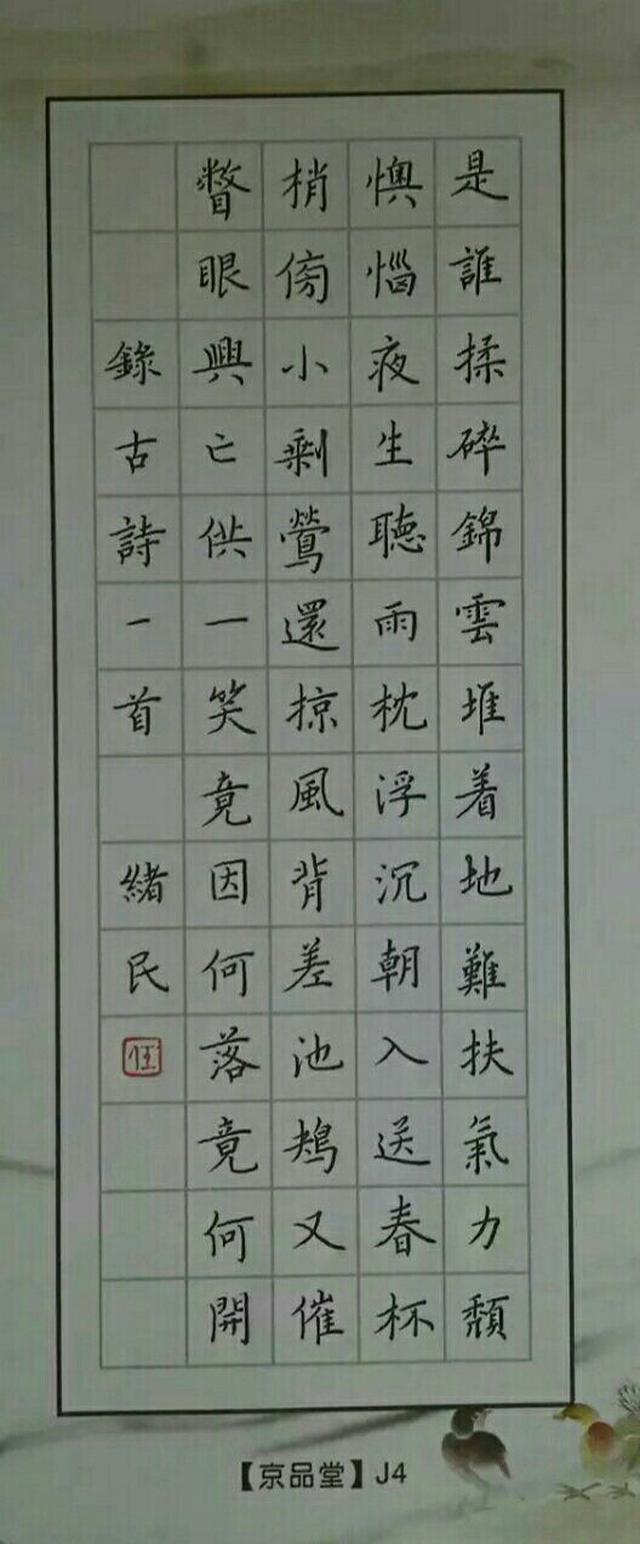 是誰揉碎錦雲堆着地難扶氣力頹
懊惱夜生聽雨枕浮沉朝入送春杯
梢傍小剩鶯還掠風背差池鴂又催
瞥眼興亡供一笑竟因何落竟何開
錄古詩一首 緒民
【京品堂】J4